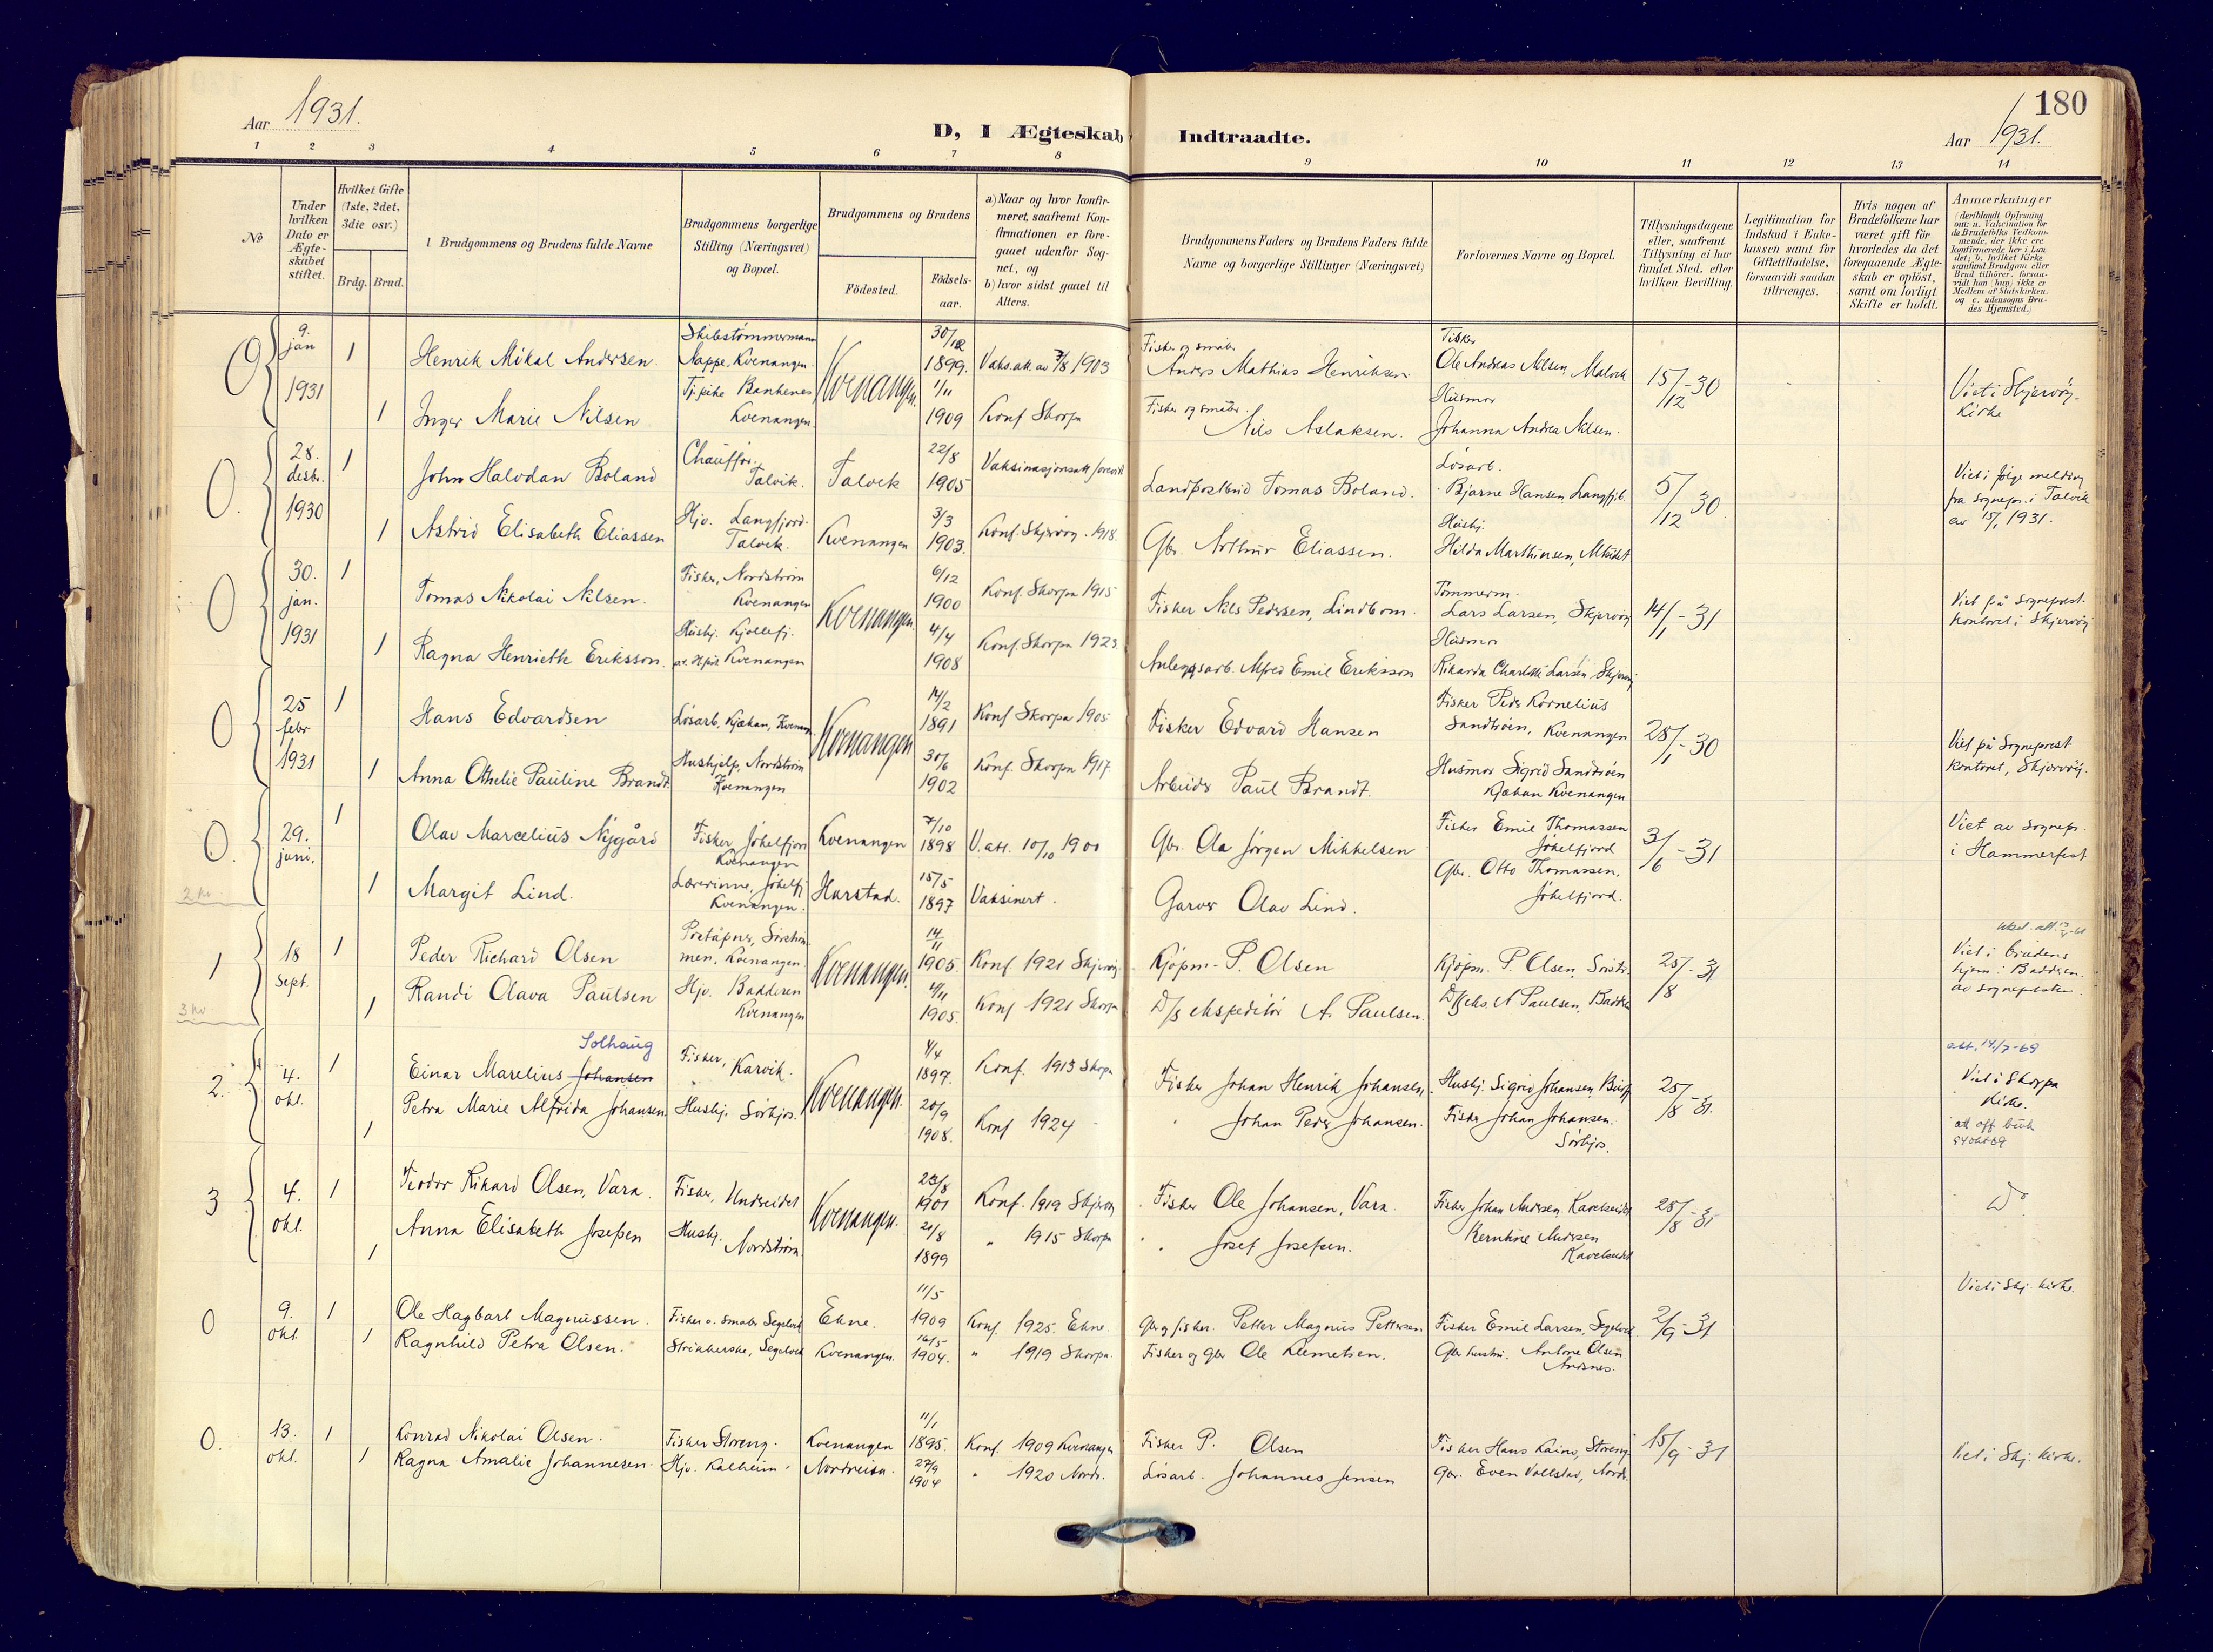 180
Aar 1931.
D, I Ægteskab Indtraadte.
Aar 1931.
1 2 3 4 5 6 7 8 9 10 11 12 13 14
No
Under hvilken Dato er Ægteskabet stiftet.
Hvilket Gifte (1ste, 2det, 3die osv.)
Brdg. Brud.
Brudgommens og Brudens fulde Navne
Brudgommens borgerlige Stilling (Næringsvei) og Bopæl.
Brudgommens og Brudens
Födested.
Födselsaar.
a) Naar og hvor konfirmeret, saafremt Konfirmationen er foregaaet udenfor Sognet, og
b) hvor sidst gaaet til Alters.
Brudgommens Faders og Brudens Faders fulde Navne og borgerlige Stillinger (Næringsvei)
Forlovernes Navne og Bopæl.
Tillysningsdagene eller, saafremt Tillysning ei har fundet Sted, efter hvilken Bevilling.
Legitimation for Indskud i Enkekassen samt for Giftetilladelse, forsaavidt saadan tiltrænges.
Hvis nogen af Brudefolkene har været gift för hvorledes da det foregaaende Ægteskab er oplöst, samt om lovligt Skifte er holdt.
Anmærkninger
(deriblandt Oplysning om: a. Vakcination for de Brudefolks Vedkommende, der ikke ere konfirmerede her i Landet; b. hvilket Kirkesamfund Brudgom eller Brud tilhörer, forsaavidt han (hun) ikke er Medlem af Statskirken, og c. udensogns Brudes Hjemsted.)
0 9. jan 1931 1 Henrik Mikal Andersen. Skibstømmermann Nappe, Kvenangen. Kvenangen. 30/12 1899. Vaks.att. av 7/8 1903 Fisker og småbr. Anders Mathias Henriksen Fisker Ole Andreas Nilsen, Malvik 15/12-30 Viet i Skjervøy kirke
1 Inger Marie Nilsen Tj.pike Bankenes Kvenangen. 1/11 1909 Konf Skorpa Fisker og småbr. Nils Aslaksen. Husmor Johanna Andrea Nilsen.
0. 28. desbr. 1930 1 John Halvdan Boland Chauffør. Talvik. Talvik 22/8 1905 Vaksinasjonsatt forevist Landpostbud Tomas Boland. Løsarb. Bjarne Hansen, Langfjb. 5/12 30. Viet i følge melding fra sognepr. i Talvik av 15/1 1931.
1 Astrid Elisabeth Eliassen Hjv. Langfjord. Talvik. Kvenangen 3/3 1903. Konf. Skjervøy. 1918. Gbr. Arthur Eliassen. Hushj. Hilda Marthinsen,
0 30. jan. 1931 1 Tomas Nikolai Nilsen. Fisker, Nordstrøm Kvenangen Kvenangen. 6/12 1900 Konf. Skorpa 1915 Fisker Nils Pedersen, Lindbom. Tømmerm. Lars Larsen, Skjervøy 14/1-31 Viet på sogneprestkontoret i Skjervøy
1 Ragna Henriette Eriksson. Hushj. Kjøllefj. Kvenangen 4/4 1908 Konf. Skorpa 1923. Anleggsarb. Alfred Emil Eriksson Husmor Rikarda Charlotte Larsen Skjervøy
0 25 febr 1931 1 Hans Edvardsen Løsarb, Kjækan, Kvenang. Kvenangen 14/2 1891 Konf Skorpa 1905 Fisker Edvard Hansen Fisker Peder Kornelius Sandtrøen, Kvenangen 28/1-30 Viet på sogneprestkontoret, Skjervøy.
1 Anna Othelie Pauline Brandt. Hushjelp, Nordstrøm Kvenangen 30/6 1902 Konf. Skorpa 1917. Arbeider Paul Brandt. Husmor Sigrid Sandtrøen Kjækan Kvenangen
0. 29. juni. 1 Olav Marcelius Nygård Fisker, Jøkelfjord Kvenangen Kvenangen 7/10 1898 V.att. 10/10 1900 Gbr. Ola Jørgen Mikkelsen Fisker Emil Thomassen Jøkelfjord 3/6-31 Viet av sognepr. i Hammerfest
2 kv
1 Margit Lind. Lærerinne, Jøkelfj. Kvenangen. Harstad. 15/5 1897 Vaksinert. Garver Olav Lind. Gbr. Otto Thomassen, Jøkelfjord.
1 18 Sept. 1 Peder Richard Olsen Poståpner, Sørstrømmen, Kvenangen Kvenangen. 14/11 1905. Konf. 1921 Skjervøy Kjøpm. P. Olsen Kjøpm. P. Olsen, Sørstr. 25/8-31 Viet i brudens hjem i Badderen. av sognepresten.
3 kv
1 Randi Olava Paulsen Hjv. Badderen Kvenangen 4/11 1905. Konf 1921 Skorpa D/s ekspeditør A. Paulsen. D/s eks. A Paulsen, Badde
2. 4. okt. 1 Einar Marelius Johansen Solhaug Fisker, Karvik. Kvenangen. 4/4 1897. Konf. 1913 Skorpa Fisker Johan Henrik Johansen, Hushj. Sigrid Johansen, 25/8-31. att. 14/7-69 Viet i Skorpa kirke.
1 Petra Marie Alfrida Johansen Hushj. Sørkjos. 20/9 1908. Konf 1924 " Johan Peder Johansen. Fisker Johan Johansen. Sørkjos.
3 4. okt. 1 Teodor Rikard Olsen, Vara. Fisker, Undereidet Kvenangen. 23/8 1901 Konf. 1919 Skjervøy Fisker Ole Johansen, Vara. Fisker Johan Andersen, 25/8-31 Do
1 Anna Elisabeth Josefsen Hushj. Nordstrøm 21/8 1899 " 1915 Skorpa " Josef Josefsen. Andersen
0 9. okt. 1 Ole Hagbart Magnussen. Fisker o. småbr Segelvik Ekne. 11/5 1909 Konf. 1925. Ekne. Gbr og fisker. Petter Magnus Pettersen Fisker Emil Larsen, Segelvik. 2/9-31 Viet i Skj. kirke.
1 Ragnhild Petra Olsen. Strikkerske, Segelvik Kvenangen. 16/5 1904. " 1919 Skorpa. Fisker og gbr Ole Klemetsen. Gbr hustru. Antone Olsen Andsnes.
0. 13. okt. 1 Konrad Nikolai Olsen. Fisker Storeng. Kvenangen 11/1 1895. Konf. 1909 Kvenangen Fisker P. Olsen Fisker Hans Kaino, Storeng 15/9-31 Viet i Skj. kirke.
1 Ragna Amalie Johannesen. Hjv. Kalheim. Nordreisa. 27/9 1904 " 1920 Nordr. Løsarb. Johannes Jensen Gbr. Even Vollstad, Nordr.